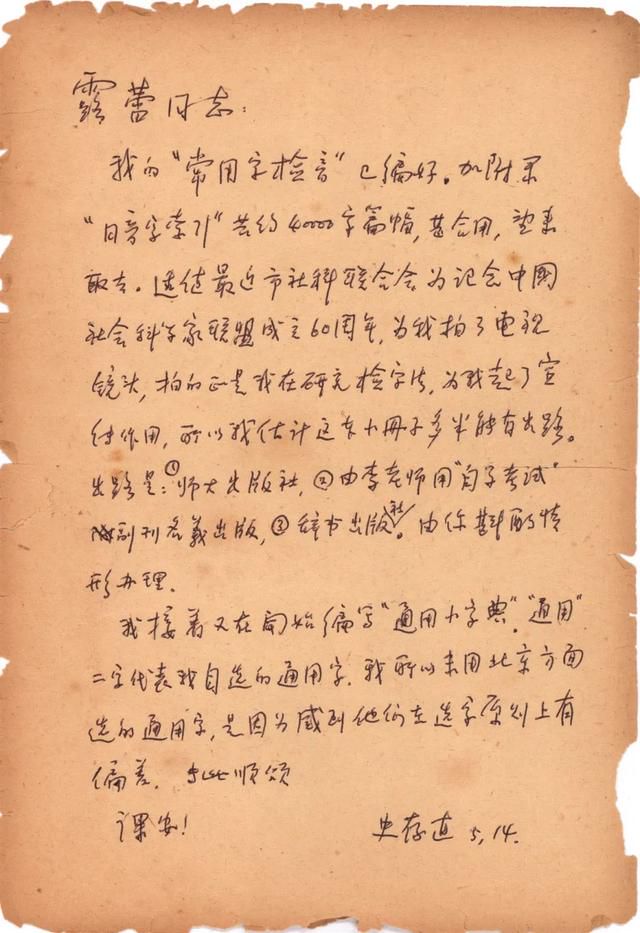 露蕾同志：
我的“常用字检音”已编好。加附录
“同音字索引”共约40000字篇幅，甚合用，望来
取去。适值最近市社科联合会为记念中国
社会科学家联盟成立60周年，为我拍了电视
镜头，拍的正是我在研究检字法，为我起了宣
传作用，所以我估计这本小册子多半能有出路。
出路是：①师大出版社，②由李老师用“自学考试”
副刊名义出版，③辞书出版社。由你斟酌情
形办理。
我接着又在开始编写“通用小字典”。“通用”
二字代表我自选的通用字。我所以未用北京方面
选的通用字，是因为感到他们在选字原则上有
偏差。专此顺颂
课安！
史存直 5,14.